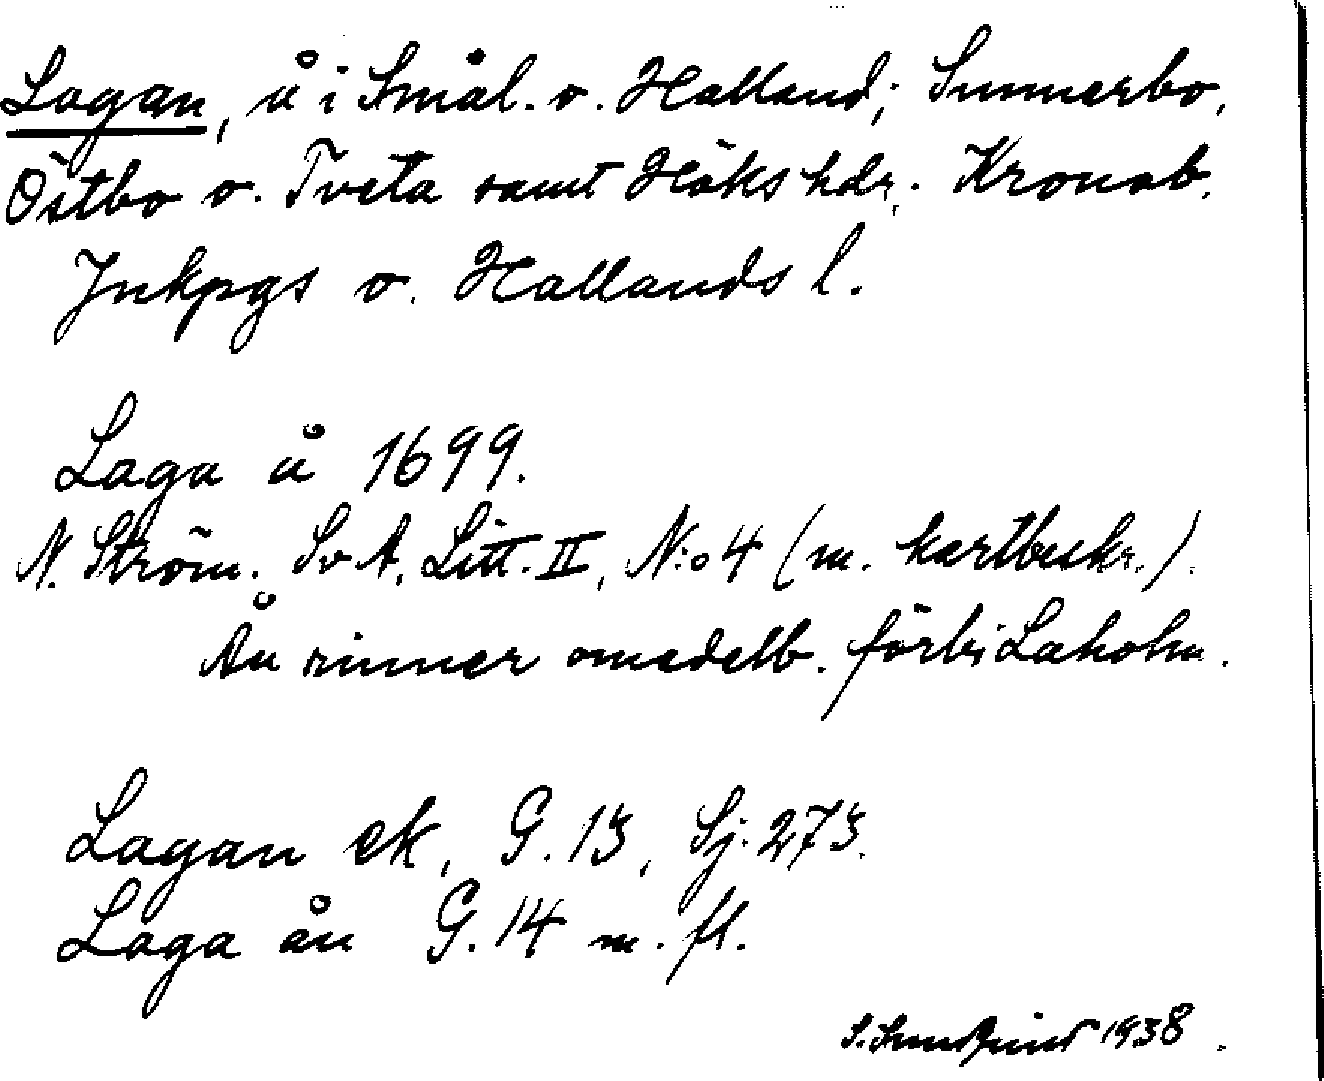 Lagan, å i Smål. o. Halland; Sunnerbo,
Östbo o. Tveta samt Höks hdr. Kronob.
Jnkpgs o. Hallands l.
Laga å 1699.
N. Ström. Sv A. Litt. II, N:o 4 (m. kartbeskr.).
Ån rinner omedelb. förbi Laholm.
Lagan ek, G. 13, Sj. 273.
Laga ån G. 14 m. fl.
S. 1938.